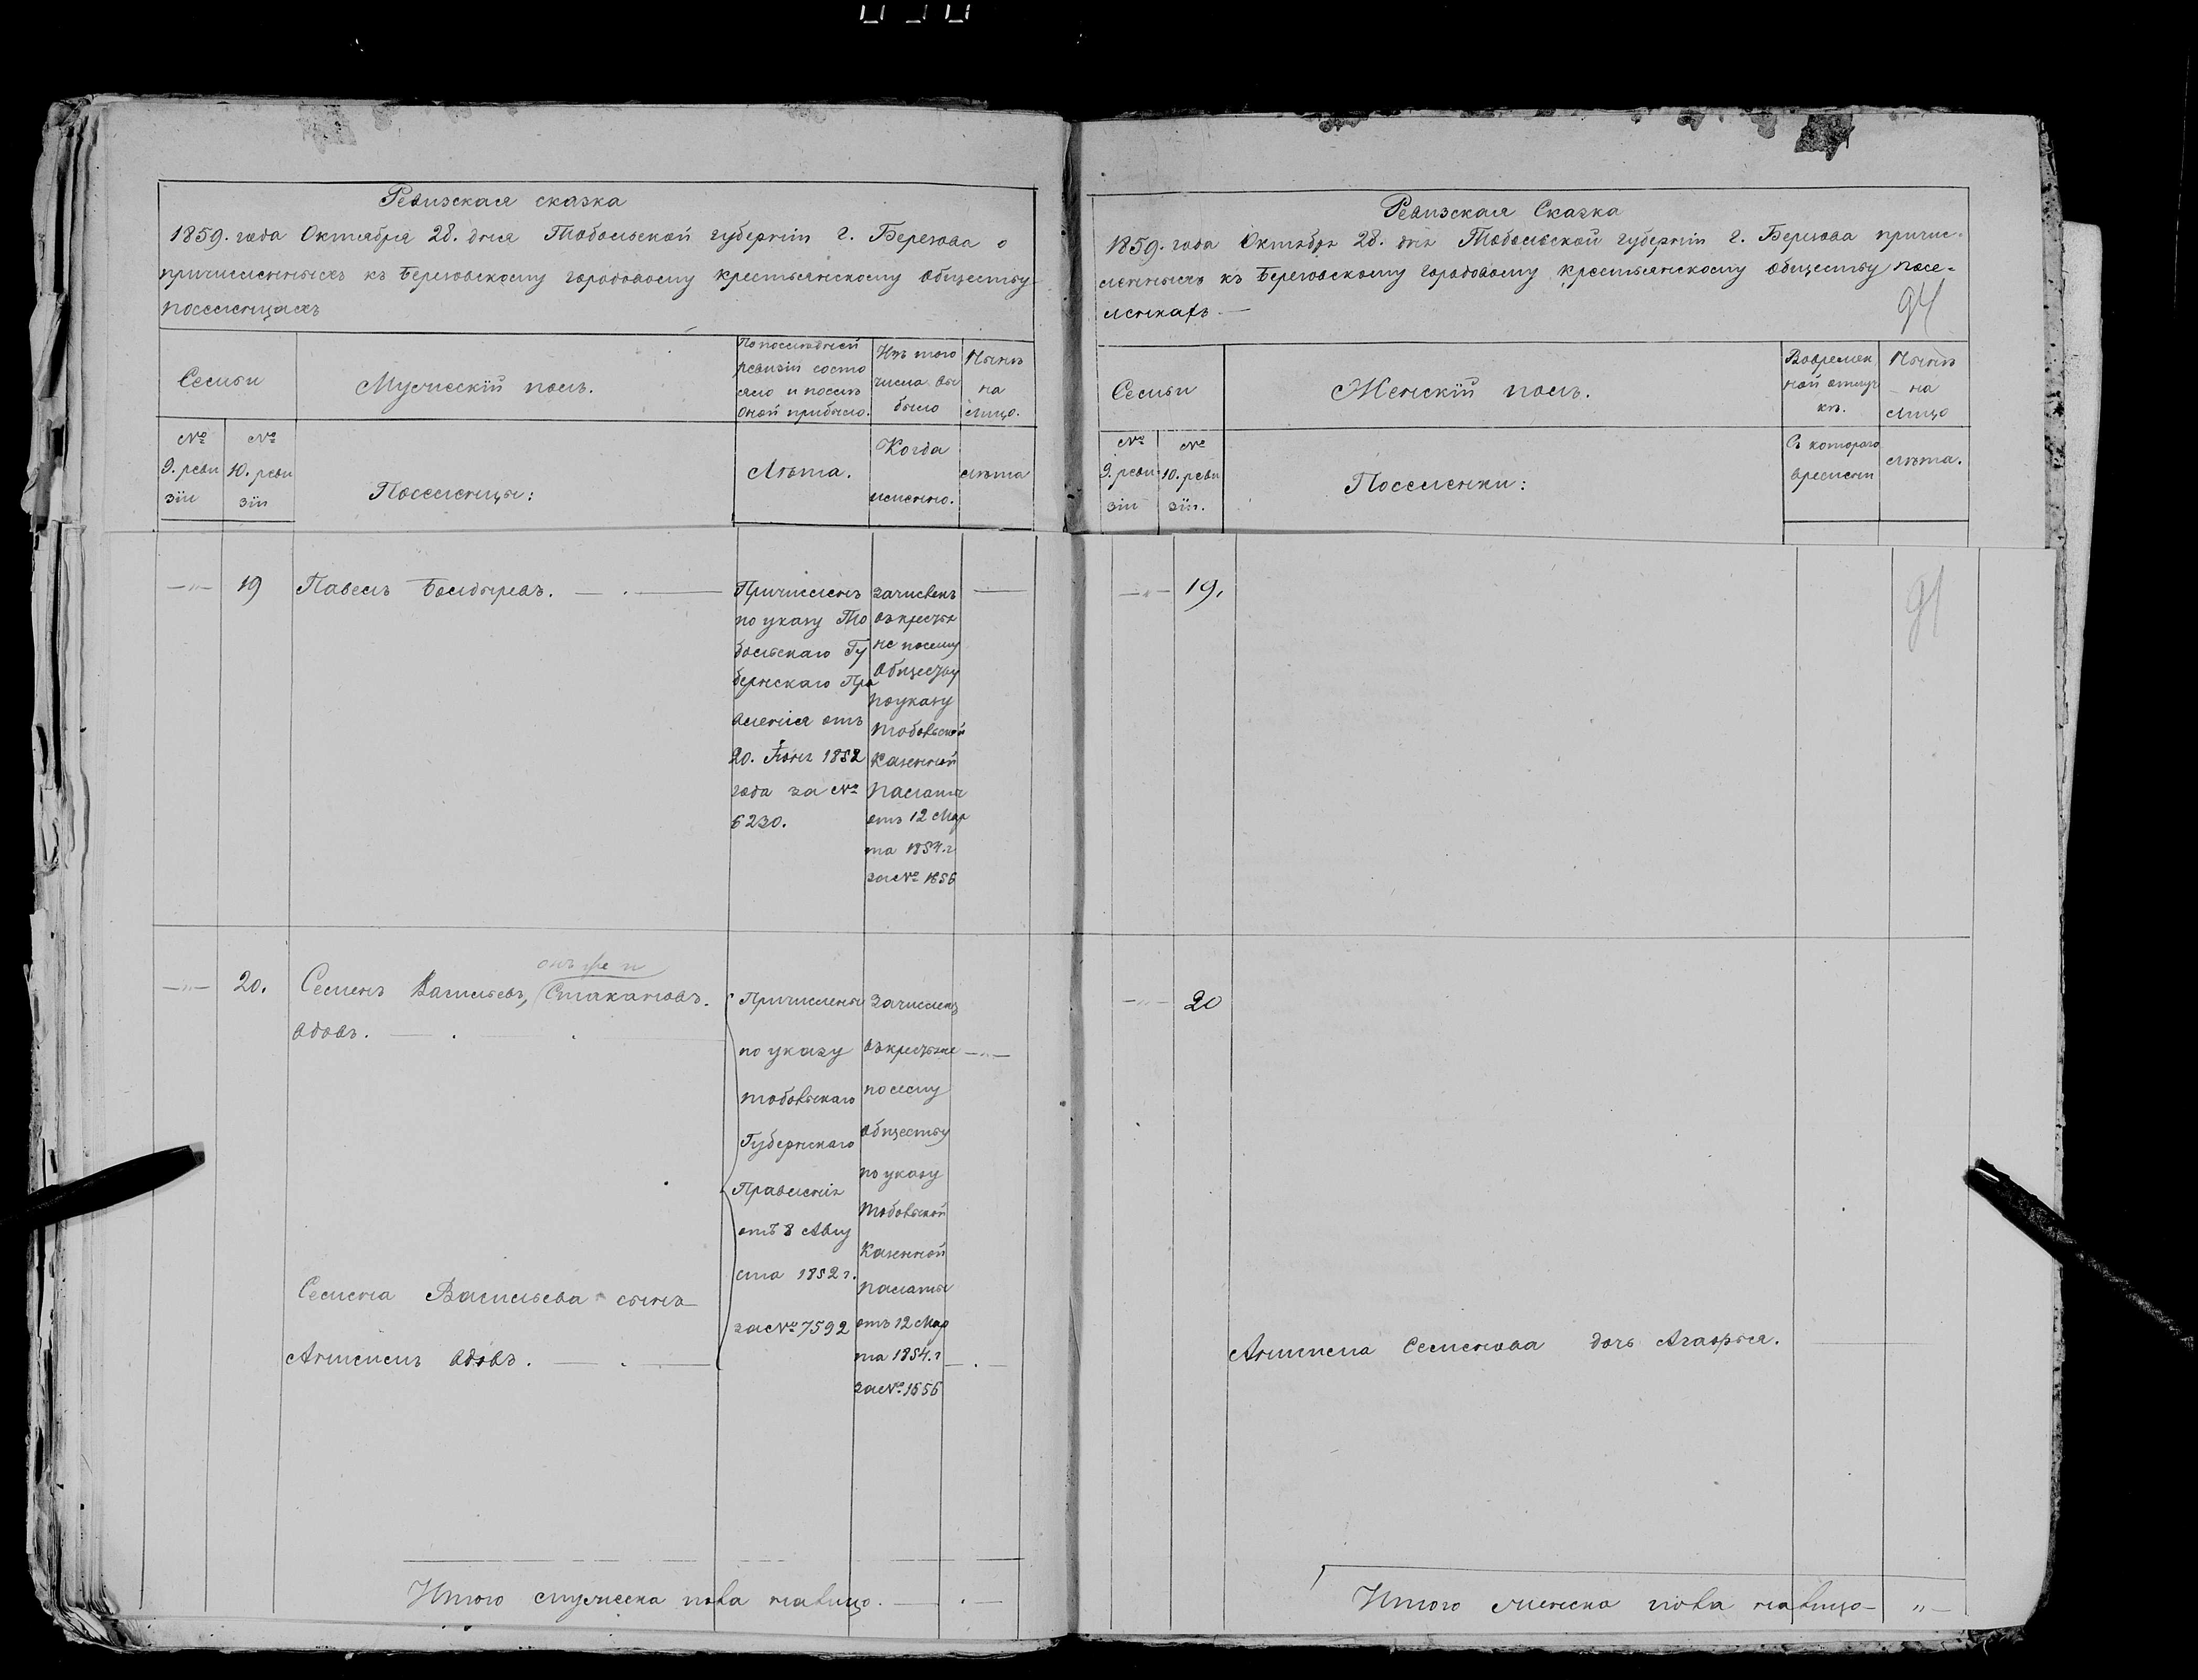 Ревизская сказка
1859. года Октября 28. дня Тобольской губерніи г. Березова о
причисленныхъ къ Березовскому городовому крестьянскому обществу
поселенцахъ
Семьи
Мужескій полъ.
По последней
ревизіи состо
яло и после
оной прибыло.
Изъ того
числа вы
было
Нынѣ
на
лицо.
№
9. реви
зіи
№
10. реви
зіи
Поселенцы:
Лѣта.
Когда
именно.
лѣта
19
Павелъ Болдыревъ.
Причисленъ
по указу То
больскаго Гу
бернскаго Пра
вленія отъ
20. Іюня 1852
года за №
6230.
зачисленъ
въ кресть
не посему
обществу
по указу
тобольской
казенной
палаты
отъ 12 Мар
та 1854. г
за № 1656
20.
онъ же и
Семенъ Васильевъ, (Стакановъ.
вдовъ.
Причислены
по указу
тобольскаго
Губернскаго
Правленія
отъ 8 Авгу
ста 1852 г.
за № 7592
Зачислены
въ крестьяне
по сему
обществу
по указу
тобольской
казенной
палаты
отъ 12 Мар
та 1854. г
за № 1656
Семена Васильева сынъ
Анисимъ вдовъ.
Итого мужеска пола налицо.
Ревизская Сказка
1859. года Октября 28. дня Тобольской губерніи г. Березова причис-
ленныхъ къ Березовскому городовому крестьянскому обществу посе-
ленкахъ
91
Семьи
Женскій полъ.
Вовремен
ной отлуч
кѣ.
Нынѣ
на
лицо
№
9. реви
зіи
№
10. реви
зіи.
Поселенки:
Съ котораго
времени
лѣта.
19.
91
20
Анисима Семенова дочь Агафья.
Итого женска пола налицо „